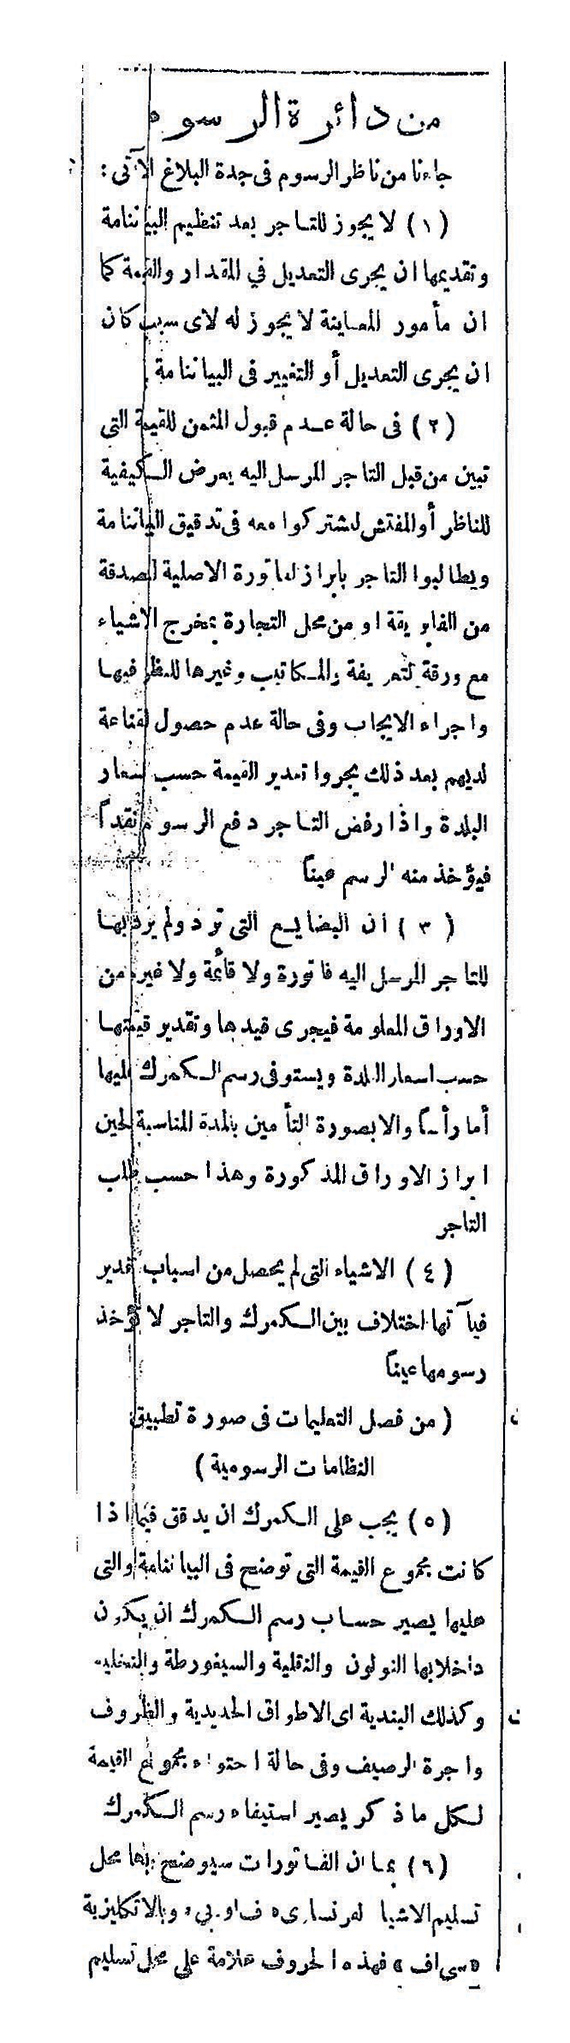 من دائرة الرسوم
جاءنا من ناظر الرسوم فى جدة البلاغ الآتى :
(١) لا يجوز للتاجر بعد تنظيم البياننامة
وتقديمها ان يجرى التعديل في المقدار والقيمة كما
ان مأمور المعاينة لا يجوز له لاى سبب كان
ان يجرى التعديل أو التغيير فى البياننامة
(٢) فى حالة عدم قبول المثمن للقيمة التى
تبين من قبل التاجر المرسل اليه يعرض الكيفية
للناظر أو المفتش ليشتركوا معه فى تدقيق البياننامة
ويطالبوا التاجر بابراز الفاتورة الاصلية المصدقة
من الفابريقة او من محل التجارة بمخرج الاشياء
مع ورقة التعريفة والمكاتيب وغيرها للنظر فيها
واجراء الايجاب وفى حالة عدم حصول القناعة
لديهم بعد ذلك يجروا تقدير القيمة حسب اسعار
البلدة واذا رفض التاجر دفع الرسوم نقداً
فيؤخذ منه الرسم عيناً
(٣) ان البضايع التى ترد ولم يرد بها
للتاجر المرسل اليه فاتورة ولا قائمة ولا غيره من
الاوراق المعلومة فيجرى قيدها وتقدير قيمتها
حسب اسعار البلدة ويستوفى رسم الكمرك عليها
أما رأساً والا بصورة التأمين بالمدة المناسبة لحين
ابراز الاوراق المذكورة وهذا حسب طلب
التاجر
(٤) الاشياء التى لم يحصل من اسباب تقدير
فيآتها اختلاف بين الكمرك والتاجر لا تؤخذ
رسومها عيناً
( من فصل التعليمات فى صورة تطبيق
النظامات الرسومية )
(٥) يجب على الكمرك ان يدقق فيما اذا
كانت مجموع القيمة التى توضح فى البياننامة والتى
عليها يصير حساب رسم الكمرك ان يكون
داخلا بها النولون والنقلية والسيغورطة والتخليه
وكذلك البندية اى الاطواق الحديدية والظروف
واجرة الرصيف وفى حالة احتواء مجموع القيمة
لكل ما ذكر يصير استيفاء رسم الكمرك
(٦) بما ان الفاتورات سيوضح بها محل
تسليم الاشيا وبالانكليزية
«سى اف» فهذه الحروف علامة على محل تسليم